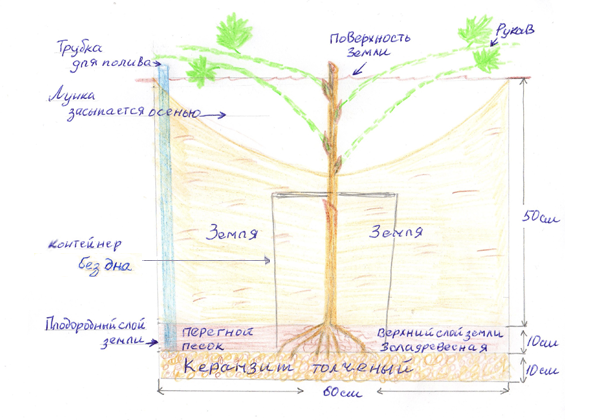 Трубка
для полива
Поверхность
Земли
Рукав
Лунка
засыпается осенью
Земля
Земля
50см
контейнер
без дна
Плодородный слой
земли
перегной
песок
Верхний слой земли
Зола древесная
10см
Керамзит толченый
10см
60см